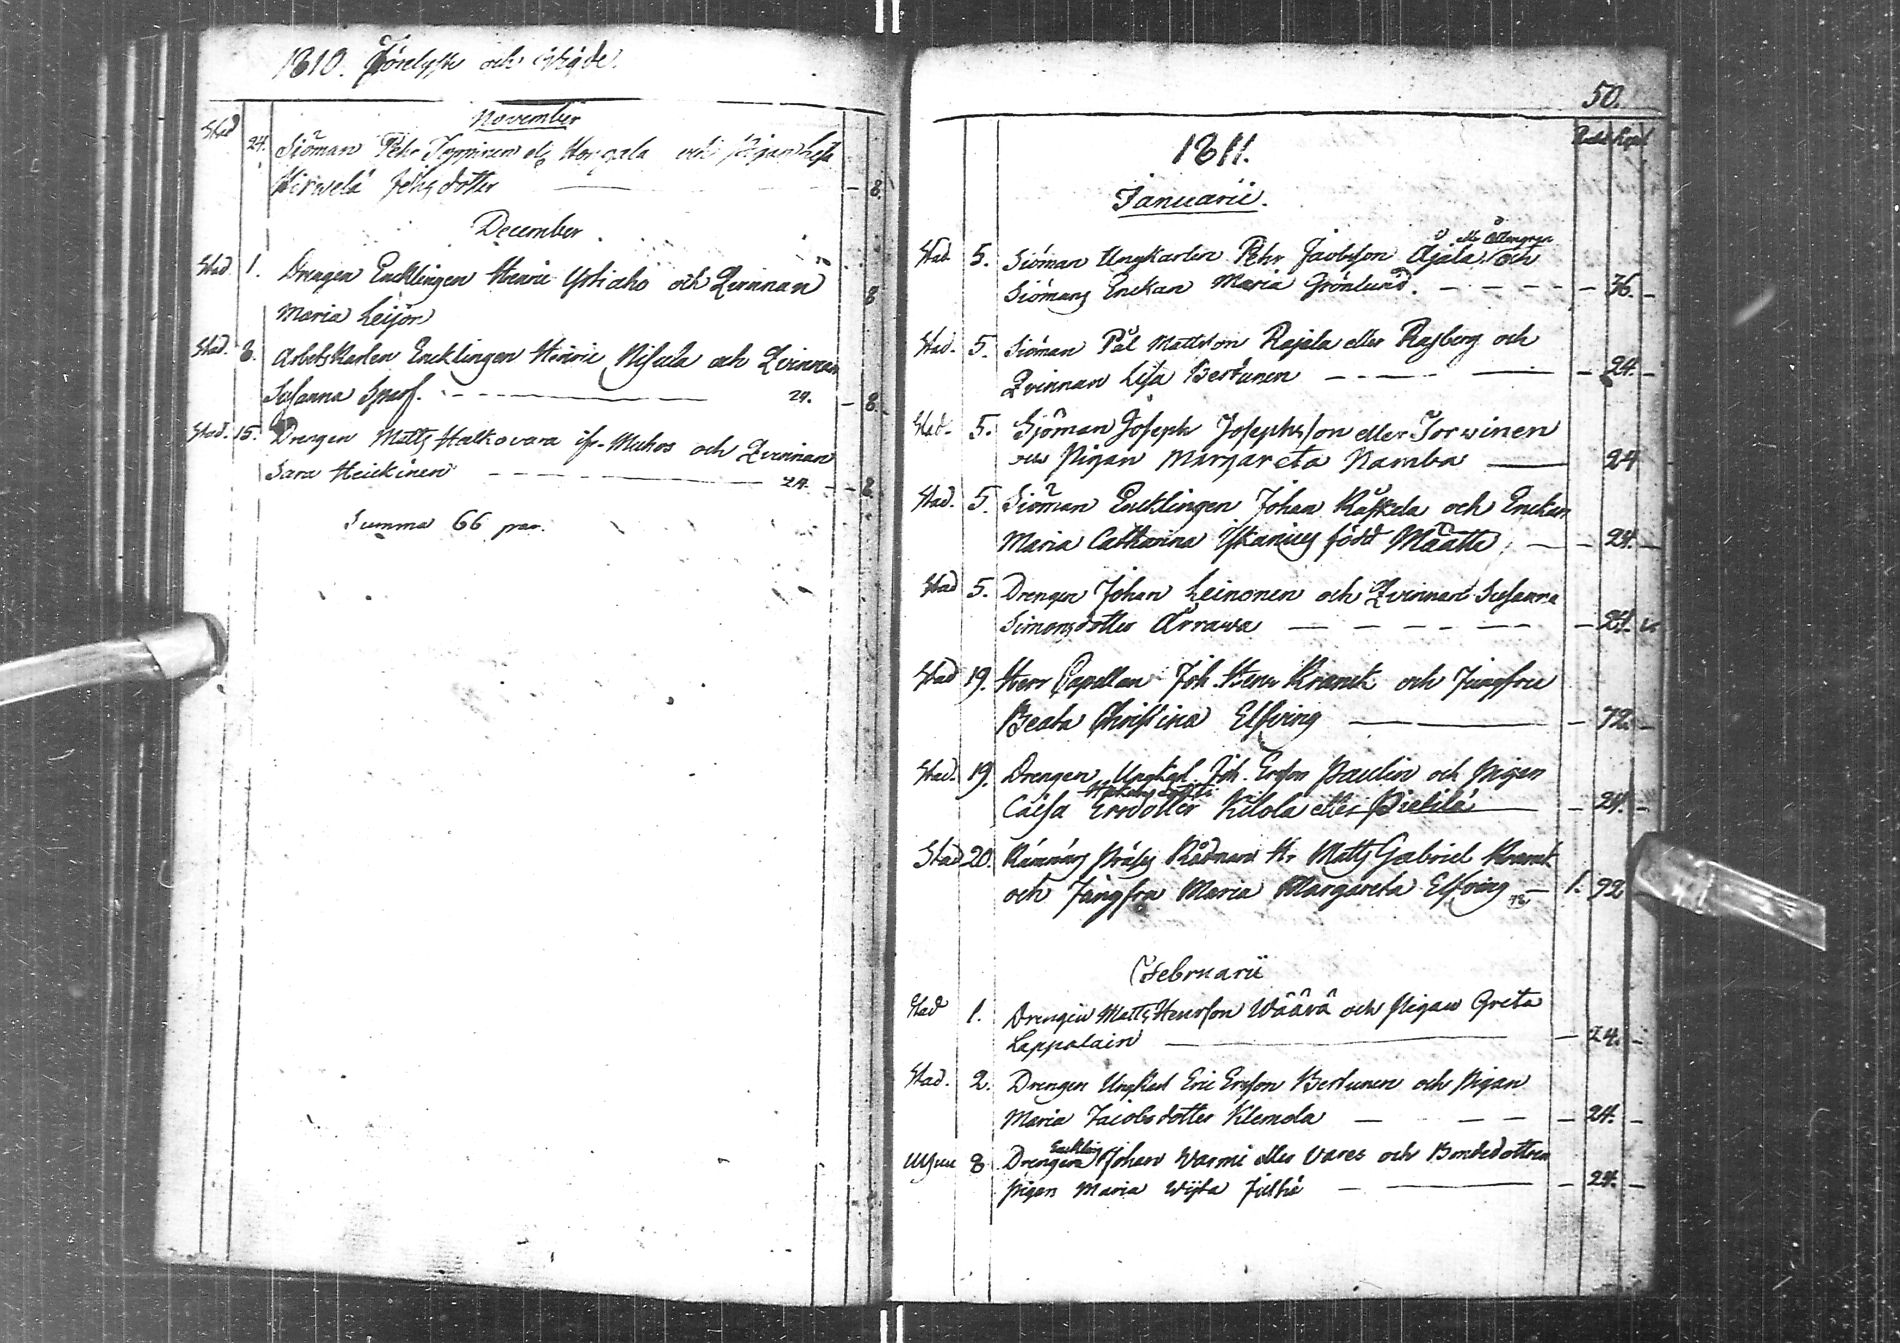 1810. Förelyste och Wigde.
November
Stad 24. Siöman Pehr Toppinen och Pigan Lisa
dotter — 8.
December
Stad 1. Drengen Encklingen Henric och Qvinnan
Maria Leijon 8
Stad. 8. Arbetskarlen Encklingen Henric Nisula och Qvinnan
Susanna 24. — 8.
Stad. 15. Drengen Matts Halkovara ifr. Muhos och Qvinnan
Sara Heickinen — 24. — 8.
Summa 66 par.
50.
1811.
Januarii.
Stad. 5. Siöman Ungkarlen Pehr Jacobsson Ojala och
Siömans Enckan Maria Grönlund. — 36. —
Stad. 5. Siöman Pål Mattsson Rajala eller Rajberg och
Qvinnan Lisa Bertunen — 24. —
Stad. 5. Sjöman Joseph Josephsson eller Torwinen
Pigan Margareta Namba — 24
Stad. 5. Siöman Encklingen Johan Råskela och Enckan
Maria Catharina född Määttä — 24. —
Stad 5. Drengen Johan Leinonen och Qvinnan Susanna
Simonsdotter Orrawa — 24.
Stad 19. Herr Capellan Joh. Henr Kranck och Jungfru
Beata Christina Elfving — 72. —
Stad. 19. Drengen Ungkarl. Joh. Ersson Paulin och Pigan
Caisa Ersdotter Kilola eller Pietilä — 24. —
Stad 20. Rådman Hr Matts Gabriel Kranck
och Jungfru Maria Margareta Elfving — 1. 92
Februarii
Stad 1. Drengen Matts Henrsson Wäärä och Pigan Greta
Lappalain — 24. —
Stad. 2. Drengen Ungkarl Eric Ersson Bertunen och Pigan
Maria Jacobsdotter Klemola — 24. —
8 Drengen Enckling Johan Warmi eller Vares och Bondedottren
Pigan Maria — 24. —